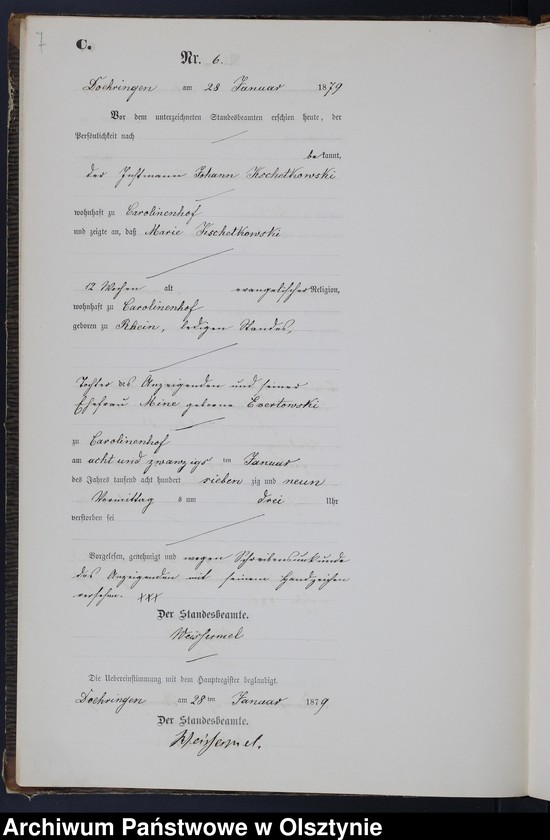 7
C.
Nr. 6.
Doehringen am 28 Januar 1879
Vor dem unterzeichneten Standesbeamten erschien heute, der
Persönlichkeit nach
bekannt,
der Instmann Johann Kschetkowski
wohnhaft zu Carolinenhof
und zeigte an, daß Marie Kschetkowski
12 Wochen alt evangelischer Religion,
wohnhaft zu Carolinenhof
geboren zu Rhein, ledigen Standes,
Tochter des Anzeigenden und seiner
Ehefrau Mine geborne Evertowski
zu Carolinenhof
am acht und zwanzigsten Januar
des Jahres tausend acht hundert siebenzig und neun
Vormittags um drei Uhr
verstorben sei
Vorgelesen, genehmigt und wegen Schreibensunkunde
des Anzeigenden mit seinem Handzeichen
versehen. XXX
Der Standesbeamte.
Weissermel
Die Uebereinstimmung mit dem Hauptregister beglaubigt.
Doehringen am 28ten Januar 1879
Der Standesbeamte.
Weissermel.
Archiwum Państwowe w Olsztynie